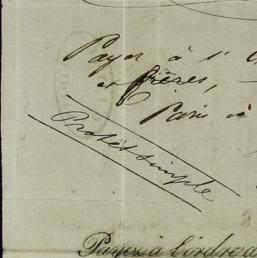 Payer à l'
et frères,
Paris
Protêt simple
Payez à l'ordre d